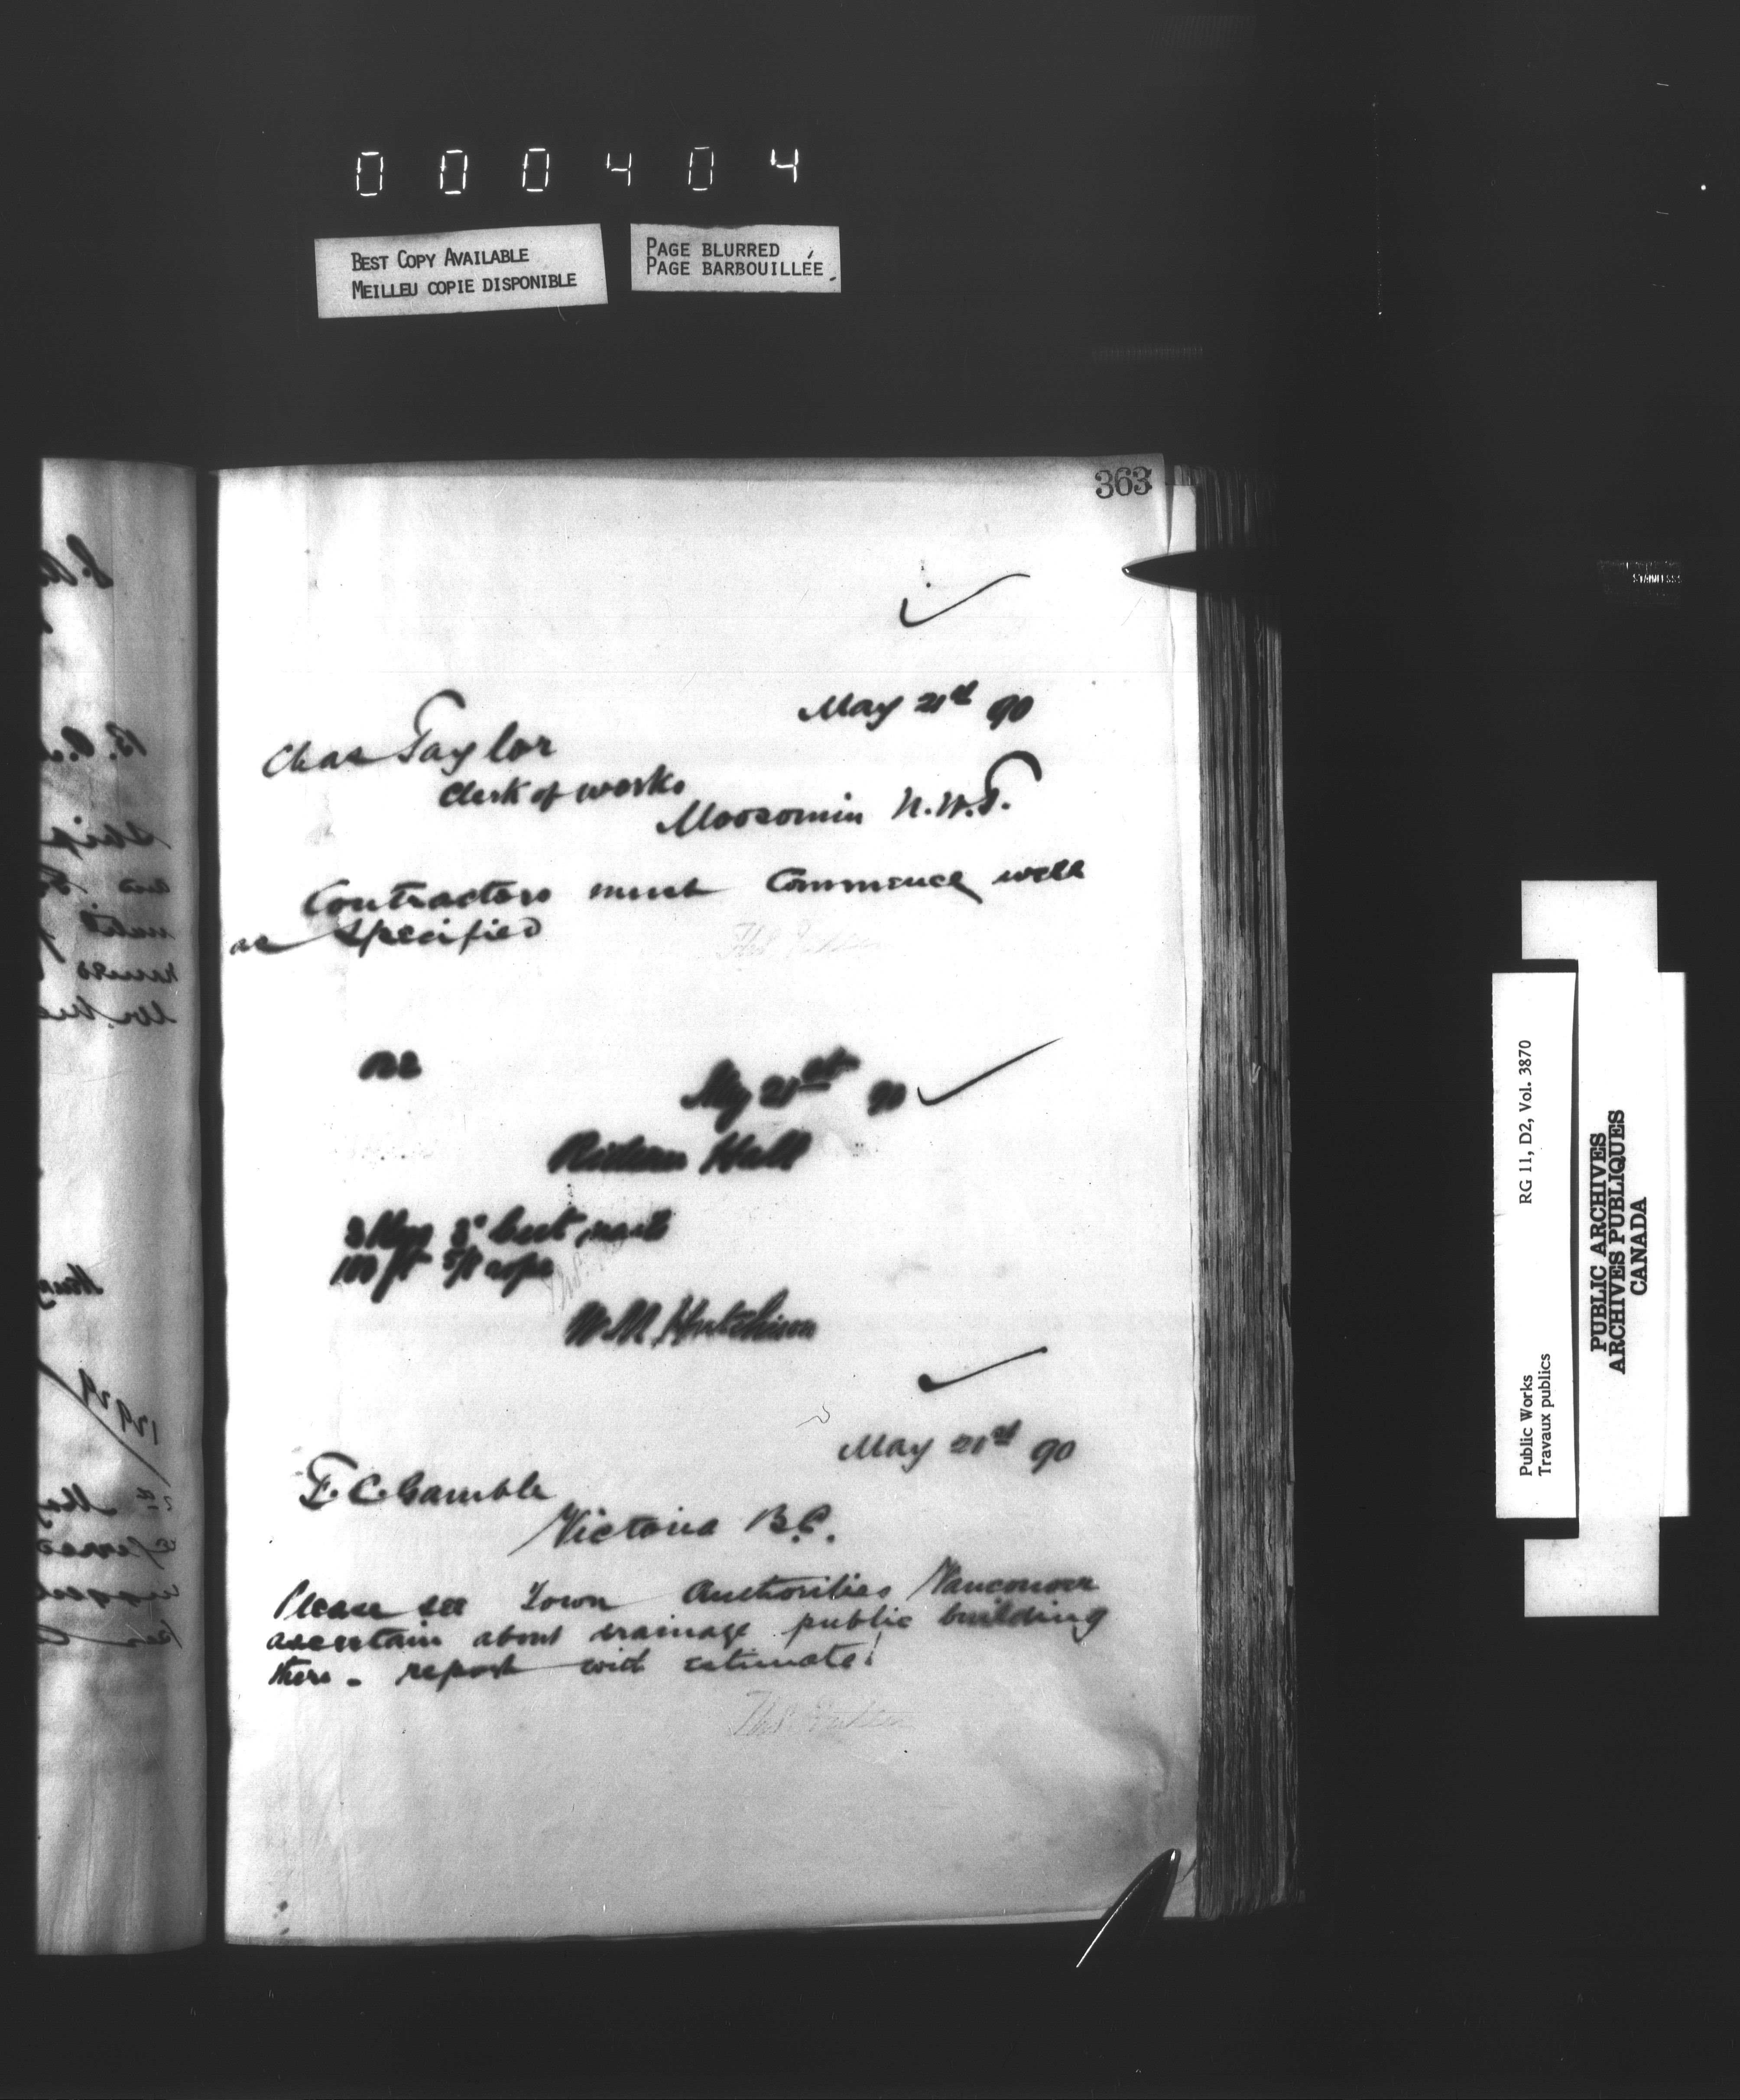 000404
BEST COPY AVAILABLE
MEILLEU COPIE DISPONIBLE
PAGE BLURRED
PAGE BARBOUILLÉE
363
May 21st 90
Chas Taylor
Clerk of works
Moosomin N.W.T.
Contractors must Commence well
as specified
Thos Fuller
May 21st 90
Rideau Hall
3 Kegs 3" cut nails
100 ft 5/8 rope
W. M. Hutchison
May 21st 90
F. C. Gamble
Victoria B.C.
Please see Town Authorities Vancouver
ascertain about drainage public building
there - report with estimate!
Thos Fuller
STAINLESS
RG 11, D2, Vol. 3870
Public Works
Travaux publics
PUBLIC ARCHIVES
ARCHIVES PUBLIQUES
CANADA